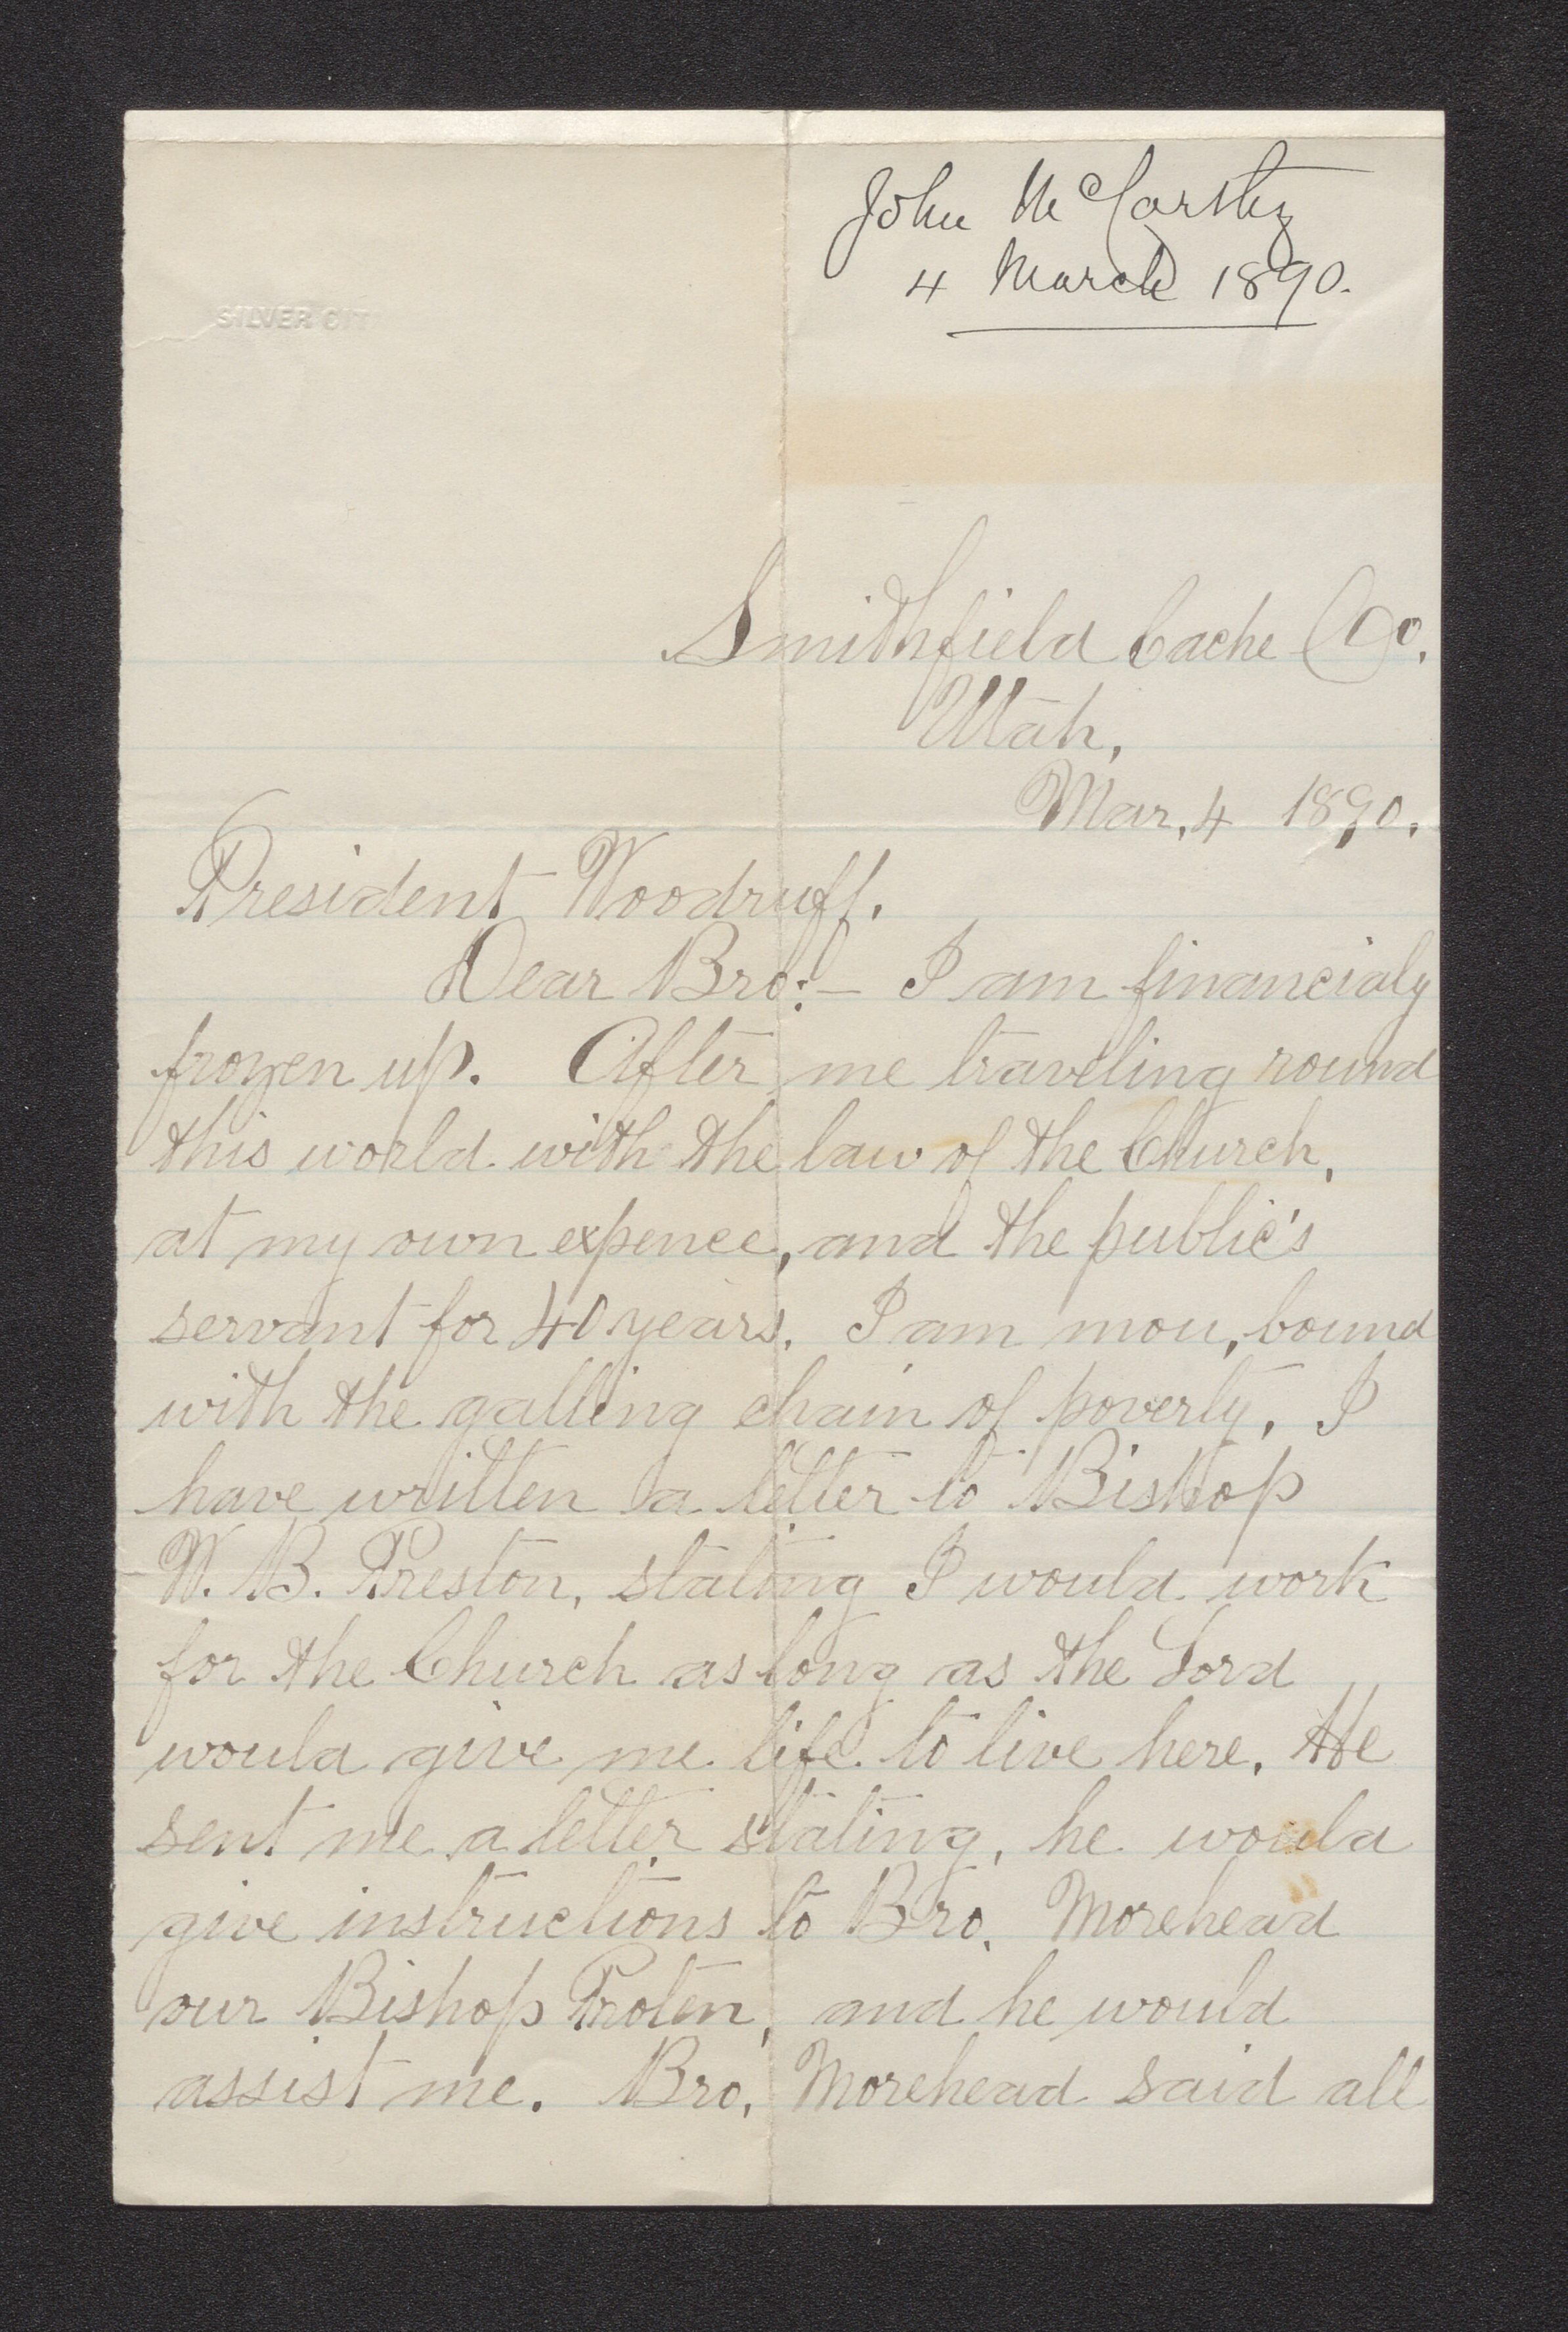 John McCarsty
4 March 1890.
SILVER CIT
Smithfield Cache Co.
Utah,
Mar, 4 1890.
President Woodruff.
Dear Bro:— I am financialy
frozen up. After me traveling round
this world with the law of the Church,
at my own expence, and the public's
servant for 40 years. I am mou, bound
with the galling chain of poverty, I
have written a letter to Bishop
W. B. Preston, stating I would work
for the Church as long as the Lord
would give me life to live here, He
sent me a letter stating, he would
give instructions to Bro. Morehead
our Bishop Protem, and he would
assist me. Bro, Morehead said all